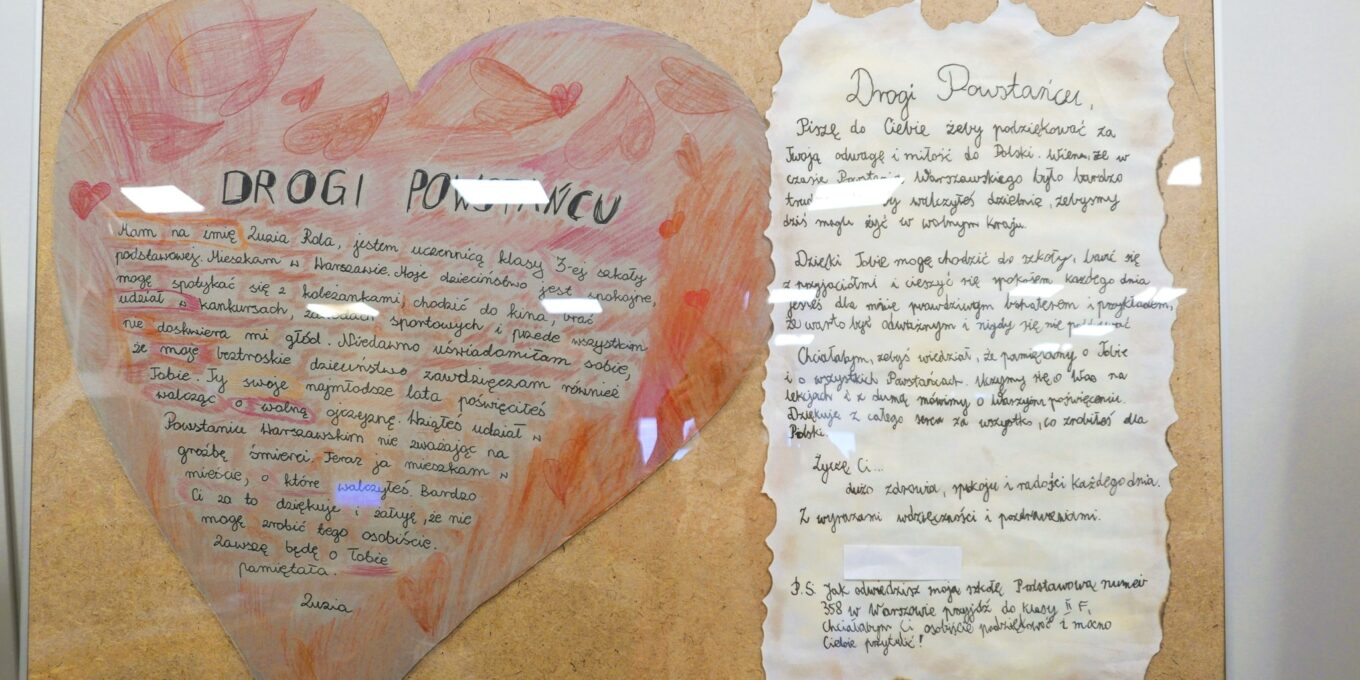 DROGI POWSTAŃCU
Mam na imię Zuzia Rola, jestem uczennicą klasy 3-ej szkoły
podstawowej. Mieszkam w Warszawie. Moje dzieciństwo jest spokojne,
mogę spotykać się z koleżankami, chodzić do kina, brać
udział w kankursach, zawodach sportowych i przede wszystkim
nie doskwiera mi głód. Niedawno uświadamiłam sobie,
że moje beztroskie dzieciństwo zawdzięczam również
Tobie. Ty swoje najmłodsze lata poświęciłeś
walcząc o wolną ojczyznę. Wziąłeś udział w
Powstaniu Warszawskim nie zważając na
groźbę śmierci. Teraz ja mieszkam w
mieście, o które walczyłeś. Bardzo
Ci za to dziękuję i żałuję, że nie
mogę zrobić tego osobiście.
Zawszę będę o Tobie
pamiętała.
Zuzia
Drogi Powstańcu,
Piszę do Ciebie żeby podziękować za
Twoją odwagę i miłość do Polski. Wiem, że w
czasie Powstania Warszawskiego było bardzo
walczyłeś dzielnie, żebyśmy
dziś mogli żyć w wolnym kraju.
Dzięki Tobie mogę chodzić do szkoły, bawić się
z przyjaciółmi i cieszyć się spokojem każdego dnia
jesteś dla mnie prawdziwym bohaterem i przykładem,
że warto być odważnym i nigdy się nie
Chciałabym, żebyś wiedział, że pamiętamy o Tobie
i o wszystkich Powstańcach. Uczymy się o Was na
lekcjach i z dumą mówimy o Waszym poświęceniu.
Dziękuję z całego serca za wszystko, co zrobiłeś dla
Polski.
Życzę Ci...
dużo zdrowia, spokoju i radości każdego dnia.
Z wyrazami wdzięczności i pozdrowieniami.
P.S. Jak odwiedzisz moją szkołę Podstawową numer
358 w Warszawie przyjdź do klasy II F,
Chciałabym Ci osobiście podziękować i mocno
Ciebie przytulić!